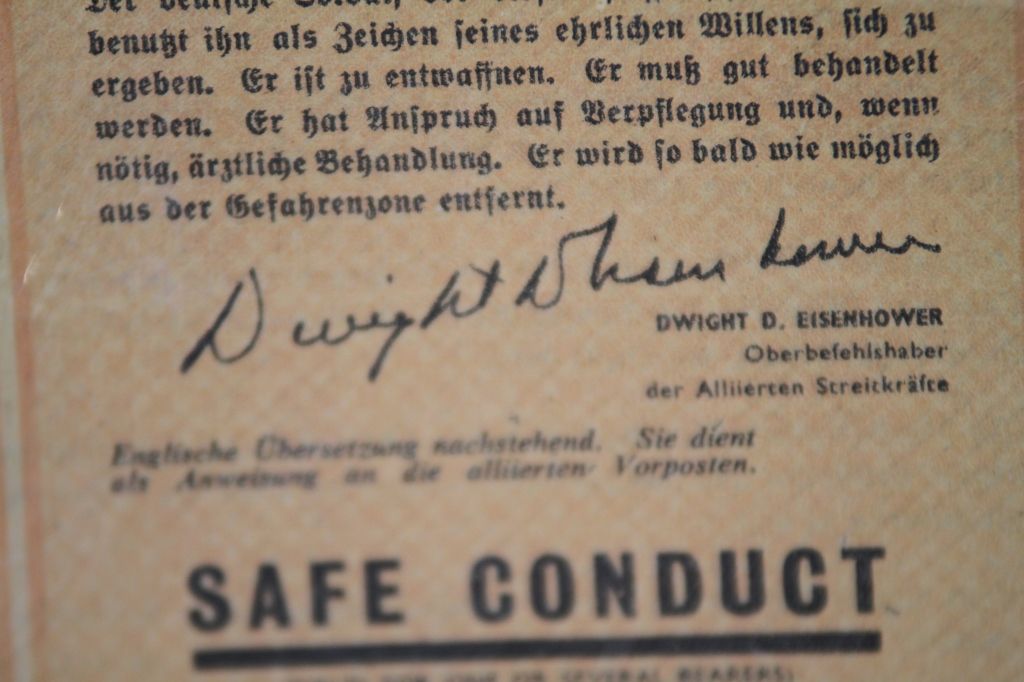 Der deutsche Soldat, der
benutzt ihn als Zeichen seines ehrlichen Willens, sich zu
ergeben. Er ist zu entwaffnen. Er muß gut behandelt
werden. Er hat Anspruch auf Verpflegung und, wenn
nötig, ärztliche Behandlung. Er wird so bald wie möglich
aus der Gefahrenzone entfernt.
Dwight D Eisenhower
DWIGHT D. EISENHOWER
Oberbefehlshaber
der Alliierten Streitkräfte
Englische Übersetzung nachstehend. Sie dient
als Anweisung an die alliierten Vorposten.
SAFE CONDUCT
SEVERAL BEARERS)